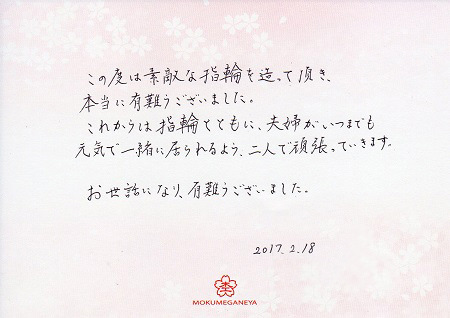 この度は素敵な指輪を造って頂き、
本当に有難うございました。
これからは指輪とともに、夫婦がいつまでも
元気で一緒に居られるよう、二人で頑張っていきます。
お世話になり、有難うございました。
2017.2.18
MOKUMEGANEYA